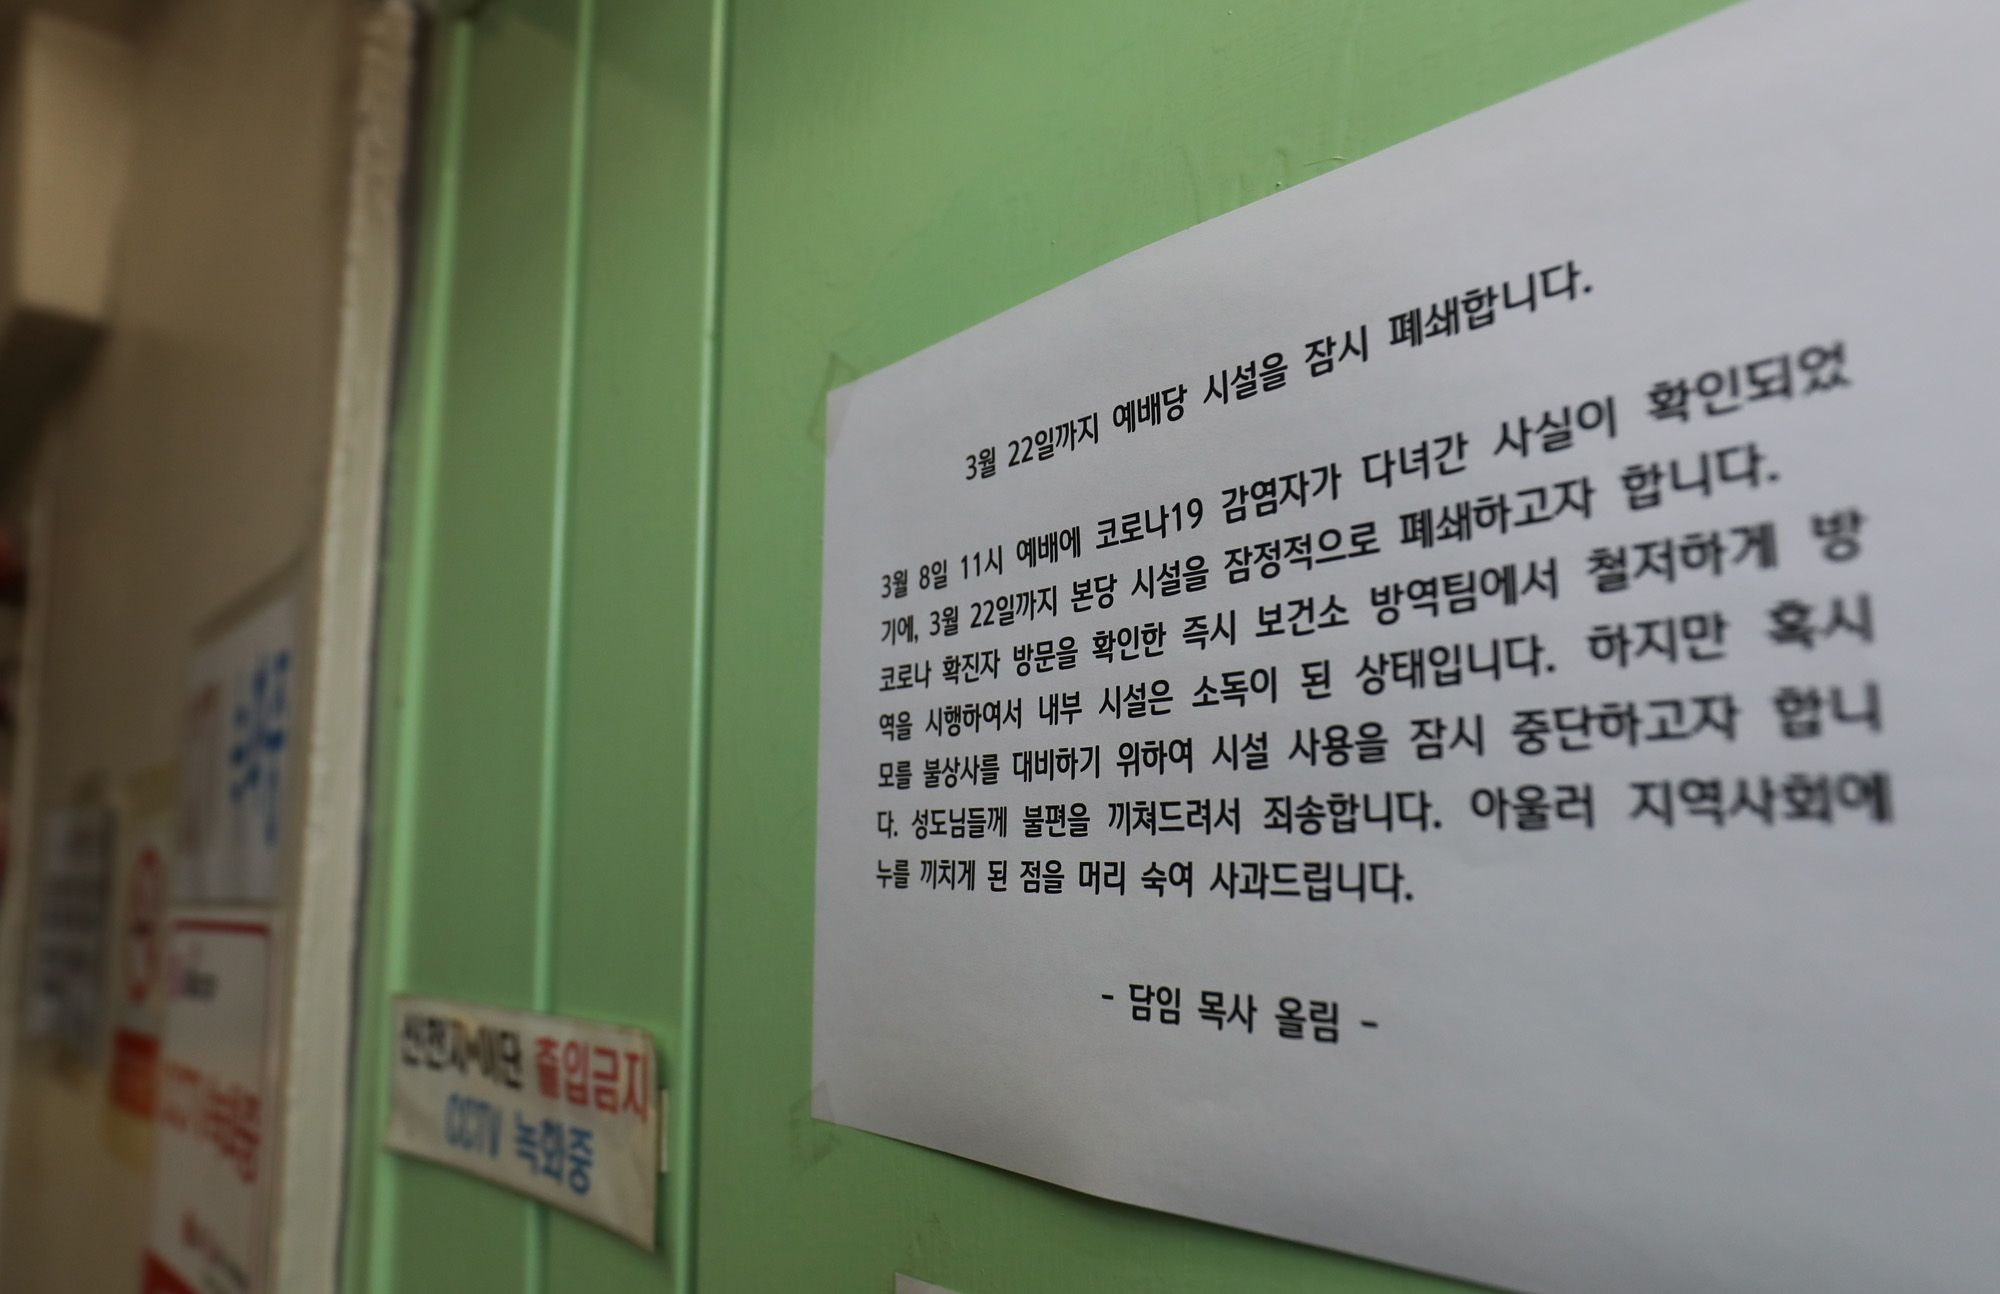 3월 22일까지 예배당 시설을 잠시 폐쇄합니다.
3월 8일 11시 예배에 코로나19 감염자가 다녀간 사실이 확인되었
기에, 3월 22일까지 본당 시설을 잠정적으로 폐쇄하고자 합니다.
코로나 확진자 방문을 확인한 즉시 보건소 방역팀에서 철저하게 방
역을 시행하여서 내부 시설은 소독이 된 상태입니다. 하지만 혹시
모를 불상사를 대비하기 위하여 시설 사용을 잠시 중단하고자 합니
다. 성도님들께 불편을 끼쳐드려서 죄송합니다. 아울러 지역사회에
누를 끼치게 된 점을 머리 숙여 사과드립니다.
- 담임 목사 올림 -
신천지·이단 출입금지
CCTV 녹화중